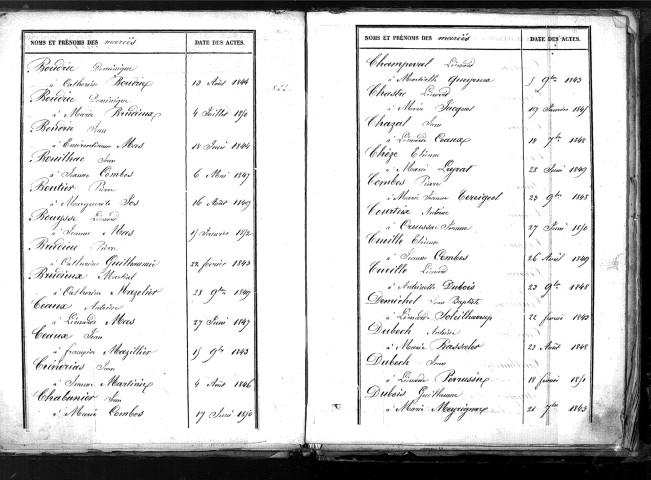 NOMS ET PRÉNOMS DES mariés DATE DES ACTES.
Boudrie Dominique
à Catherine 13 Août 1844
Boudrie Dominique
à Marie 4 Juillet
Jean
à Mas 18 Juin 1844
Jean
à Jeanne Combes 6 Mai 1847
Routier Pierre
à Marguerite 16 Août 1849
Bouysse Léonard
à Jeanne Mas
Pierre
à Catherine Guilhaumie 22 février 1843
Martial
à Catherine Mazelier 23 9bre 1849
Ceaux Antoine
à Léonarde Mas 27 Juin 1847
Ceaux Jean
à françoise Mazillier 15 9bre 1843
Jean
à Jeanne Martinie 4 Août 1846
Chabanier Jean
à Marie Combes 17 Juin
NOMS ET PRÉNOMS DES mariés DATE DES ACTES.
Champeval Léonard
à 5 9bre 1843
Chastre Léonard
à Marie Jacques 19 Janvier 1845
Chazal Jean
à Léonarde Ceaux 18 7bre 1848
Chèze Etienne
à Marie 23 Juin 1849
Combes Pierre
à Marie Jeanne 23 9bre 1843
Courtine Antoine
à Jeanne 27 Juin
Cueille Etienne
à Jeanne Combes 26 Avril 1849
Cueille Léonard
à Antoinette Dubois 23 9bre 1848
Demichel Jean Baptiste
à Léonarde Soleilhavoup 22 février 1843
Dubech Antoine
à Marie 23 Août 1848
Dubech Jean
à Léonarde Perrussin 18 février
Dubois Guillaume
à Marie Meyrignac 21 7bre 1843